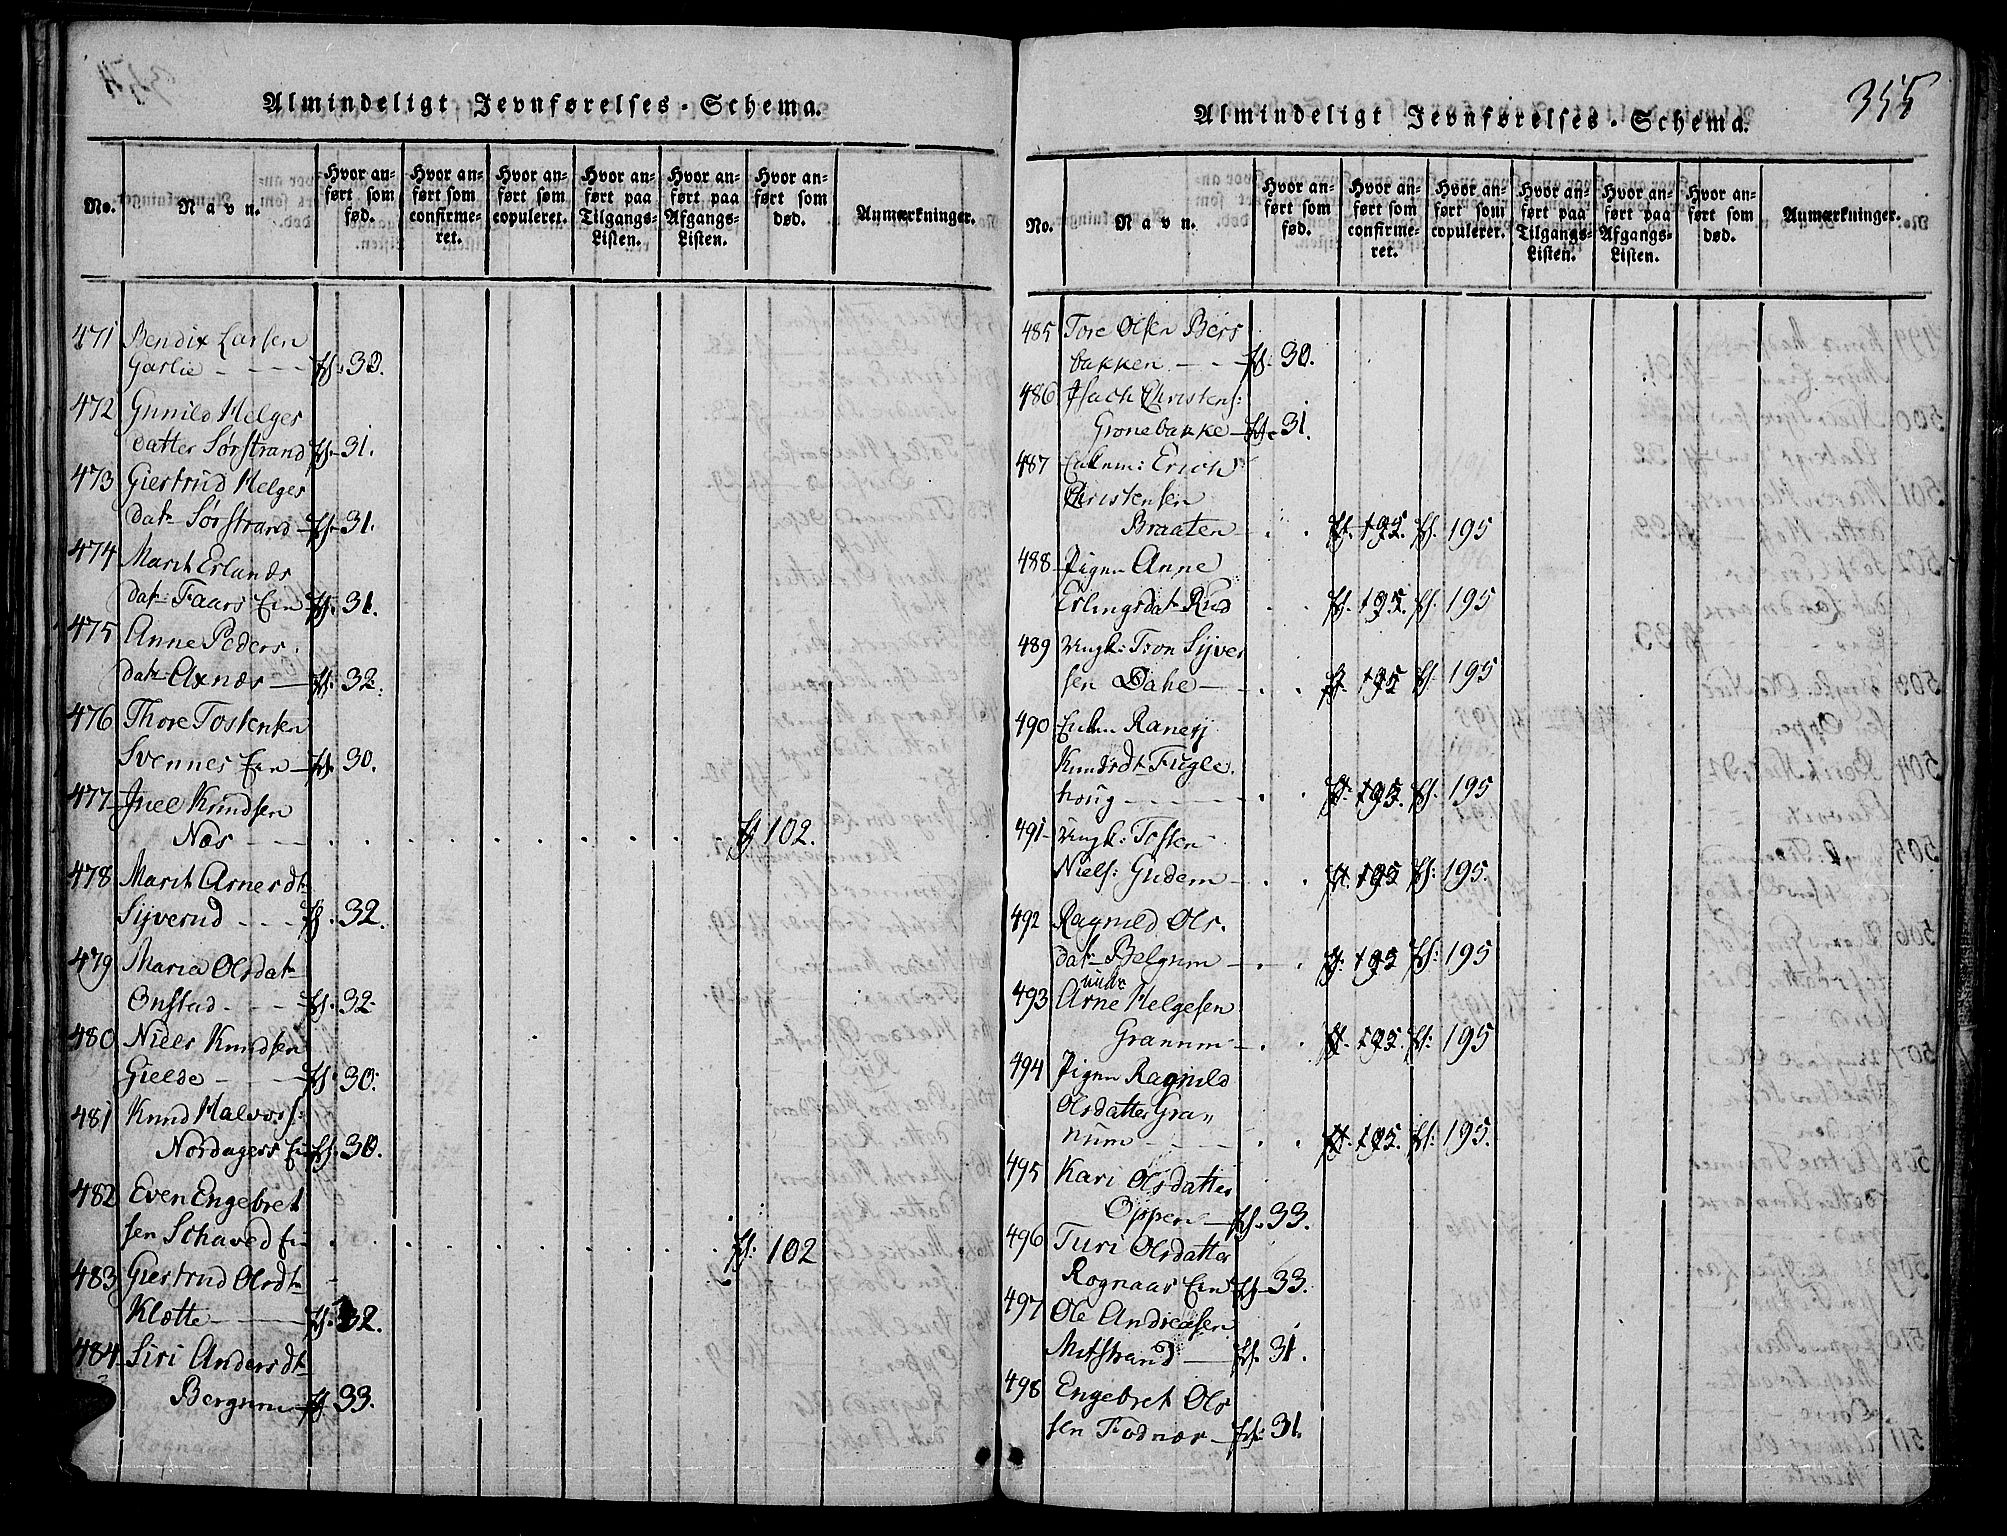 Almindeligt Jevnførelses-Schema.
No. Navn. Hvor anført som fød. Hvor anført som confirmeret. Hvor anført som copuleret. Hvor anført paa Tilgangs-Listen. Hvor anført paa Afgangs-Listen. Hvor anført som død. Anmærkninger.
471 Bendix Larsen
Garlie - - - - fs. 30.
472 Gunild Helges
datter Sørstrand fs. 31.
473 Giertrud Helges
dat. Sørstrand fs. 31.
474 Marit Erlands
dat. Faars Ein fs. 31.
475 Anne Peders
dat. Axnæs - fs. 32.
476 Thore Tostensen
Svennes Ein - fs. 30.
477 Juel Knudsen
Næs - - - . . . . . fs. 102.
478 Marit Arnesdt.
Sijverud - - - fs. 32.
479 Maria Olsdat.
Onstad - - - fs. 32
480 Niels Knudsen
Gielde - - - fs. 30.
481 Knud Halvors:
Nordagers Ein fs. 30.
482 Even Engebret
sen Schaved Ein . . . . . fs: 102
483 Giertrud Olsdt.
Klætte - - - fs. 32.
484 Siri Andersdt.
Bergum - fs. 33.
355
Almindeligt Jevnførelses-Schema.
No. Navn. Hvor anført som fød. Hvor anført som confirmeret. Hvor anført som copuleret. Hvor anført paa Tilgangs-Listen. Hvor anført paa Afgangs-Listen. Hvor anført som død. Anmærkninger.
485 Tore Olsen Bers
bakken - - - fs. 30.
486 Isach Christens:
Gronebakke - fs. 31.
487 Enkem: Erich
Christensen
Braaten - . . fs. 195. fs. 195
488 Pigen Anne
Erlingsdat. Rud . . fs. 195. fs. 195
489 Ungk: Tron Sijver
sen Dahe - . . fs. 195 fs. 195
490 Enken Ranej
Knudsdt. Fugle
houg - - - . . fs. 195. fs. 195
491 Ungk: Tosten
Niels: Gudem - . . fs. 195 fs. 195.
492 Ragnild Ols
dat. Belgum - . . fs. 195 fs: 195
493 Arne Helgesen
Granum - . . fs. 195. fs: 195
494 Pigen Ragnild
Olsdatter Gra
num - - - . . fs. 195. fs: 195.
495 Kari Olsdatter
Oppen - fs. 33.
496 Turi Olsdatter
Rognaas Ein fs. 33.
497 Ole Andreasen
Mitstrand - fs. 31.
498 Engebret Ols
sen Fodnæs - fs. 31.